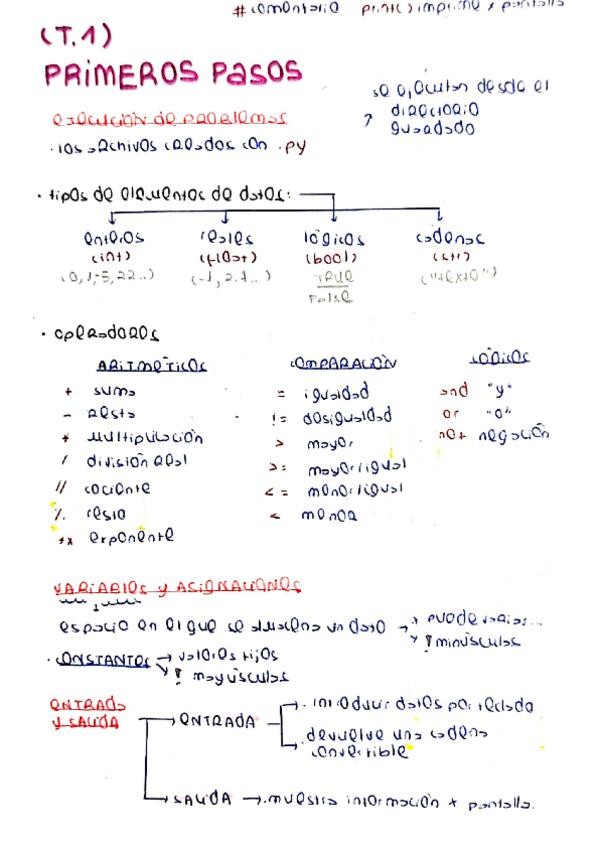 # comentario print() imprime x pantalla
(T.1)
PRIMEROS PASOS
ejecución de problemas
se ejecutan desde el
directorio
guardado
· los archivos creados con .py
· tipos de elementos de datos:
enteros reales lógicos cadenas
(int) (float) (bool) (str)
(0,1,-5,22...) (-1, 2.7...) True ("texto")
False
· operadores
ARITMÉTICOS COMPARACIÓN LÓGICOS
+ suma = igualdad and "y"
- resta != desigualdad or "o"
* multiplicación > mayor not negación
/ división real >= mayor/igual
// cociente <= menor/igual
% resto < menor
** exponente
VARIABLES y ASIGNACIONES
espacio en el que se almacena un dato → puede variar...
! minúsculas
· CONSTANTES → valores fijos
! mayúsculas
ENTRADA
y SALIDA
→ ENTRADA
· introducir datos por teclado
· devuelve una cadena
convertible
→ SALIDA → · muestra información x pantalla.